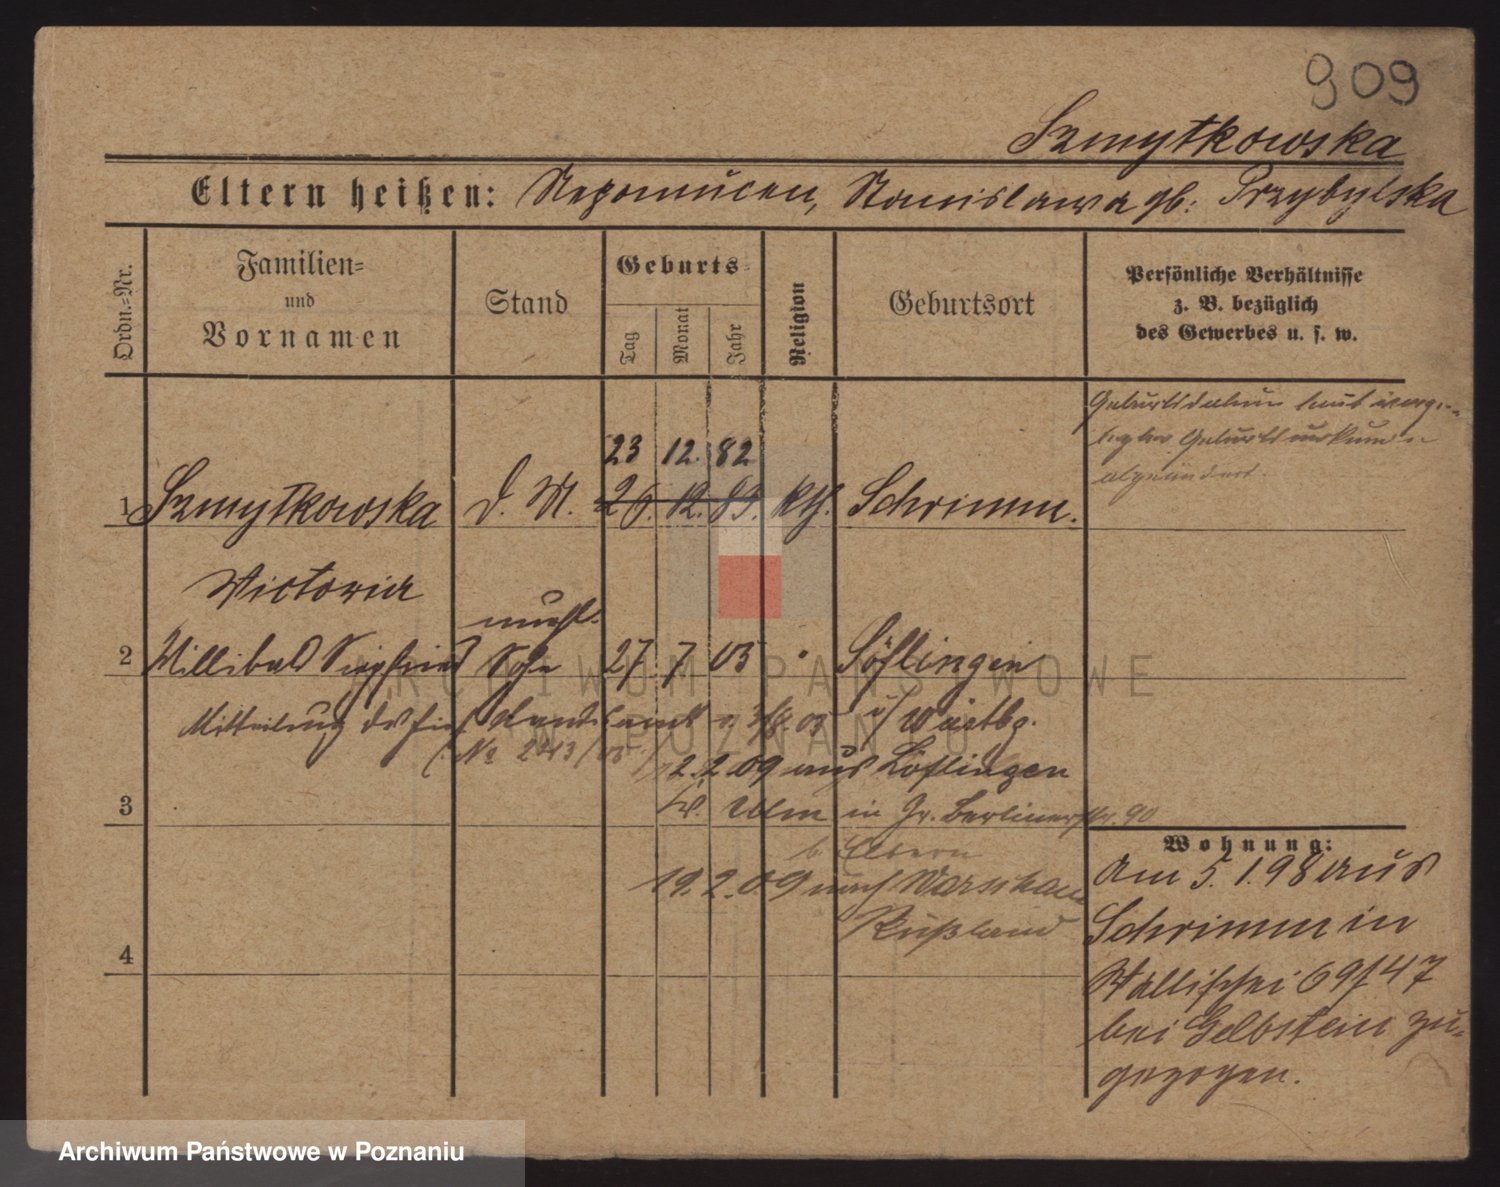 909
Szmytkowska
Eltern heißen: Nepomucen, Stanislawa gb: Przybylska
Ordn.-Nr.
Familien-
und
Vornamen
Stand
Geburts-
Tag
Monat
Jahr
Religion
Geburtsort
Persönliche Verhältnisse
z. B. bezüglich
des Gewerbes u. s. w.
Geburtsdatum laut
Geburtsurkunde
abgeändert.
23 12. 82
1 Szmytkowska d. M. 26. 12. 83. kth. Schrimm.
Victoria
unehl.
2 Willibald Siegfried Sohn 27. 7. 03 Söflingen
Mitteilung des Standesamts v. 3/8. 03 i/ Würtbg.
(No 2213/03)
12.2.09 aus Söflingen
3 Ulm in Gr. Berlinerstr. 90
b. Eltern
19.2.09 nach Warschau
Rußland
4
Wohnung:
Am 5.1.98 aus
Schrimm in
Wallischei 69/47
bei Gelbstein zu-
gezogen.
ARCHIWUM PAŃSTWOWE
W POZNANIU
Archiwum Państwowe w Poznaniu